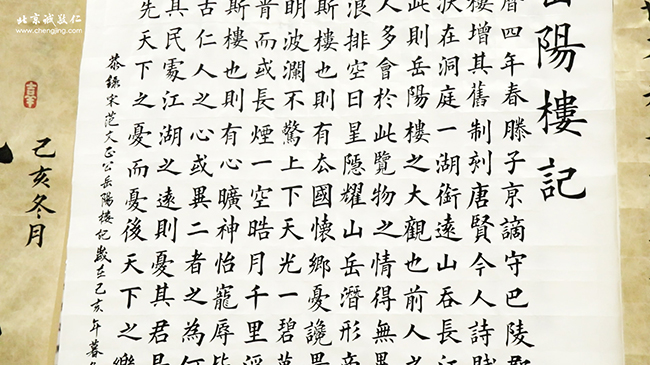 岳陽樓記
曆四年春滕子京謫守巴陵郡
樓增其舊制刻唐賢今人詩賦
狀在洞庭一湖銜遠山吞長江
此則岳陽樓之大觀也前人之
人多會於此覽物之情得無異
浪排空日星隱耀山岳潛形商
斯樓也則有去國懷鄉憂讒畏
明波瀾不驚上下天光一碧萬
青而或長煙一空皓月千里浮
斯樓也則有心曠神怡寵辱皆
古仁人之心或異二者之為何
其民處江湖之遠則憂其君是
先天下之憂而憂後天下之樂
恭錄宋范文正公岳陽樓記歲在己亥年暮
己亥冬月
北京诚敬仁
www.chengjing.com